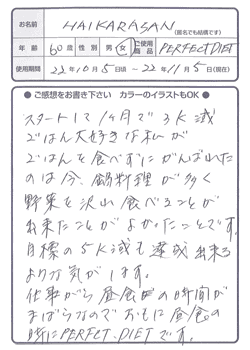 お名前 HAIKARASAN (匿名でも結構です)
年齢 60歳 性別 男・女 ご使用商品 PERFECT DIET
使用期間 22年10月5日頃 〜 22年11月5日(現在)
●ご感想をお書き下さい カラーのイラストもOK●
スタートして1ヶ月で3K減
ごはん大好きな私が
ごはんを食べずにがんばれた
のは今、鍋料理が多く
野菜を沢山食べることが
出来たことがよかったことです。
目標の5K減も達成出来る
ような気がします。
仕事がら昼食の時間が
まばらなのでおもに昼食の
時にPERFECT DIETです。